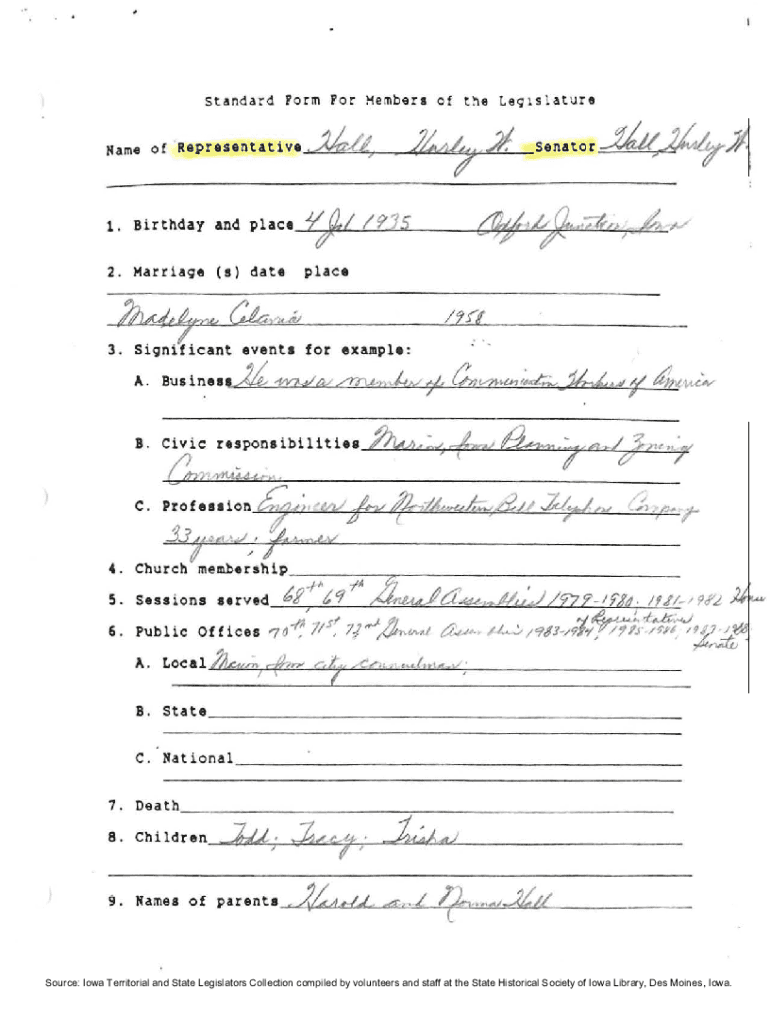 1
Standard Form For Members of the Legislature
Name of Representative Hall, Hurley W. Senator Hall, Hurley W.
1. Birthday and place 4 Jul 1935 Oxford Junction, Iowa
2. Marriage (s) date place
Madelyne 1958
3. Significant events for example:
A. Business He was a member of Communication Workers of America
B. Civic responsibilities Marion, Iowa Planning and Zoning
Commission
C. Profession Engineer for Northwestern Bell Telephone Company
33 years; farmer
4. Church membership
5. Sessions served 68th, 69th General Assemblies 1979-1980, 1981-1982 House
of Representatives
6. Public Offices 70th, 71st, 72nd General Assemblies 1983-1984, 1985-1986, 1987-1988
Senate
A. Local Marion, Iowa city councilman;
B. State
C. National
7. Death
8. Children Todd; Tracy; Trisha
9. Names of parents Harold and Norma Hall
Source: Iowa Territorial and State Legislators Collection compiled by volunteers and staff at the State Historical Society of Iowa Library, Des Moines, Iowa.